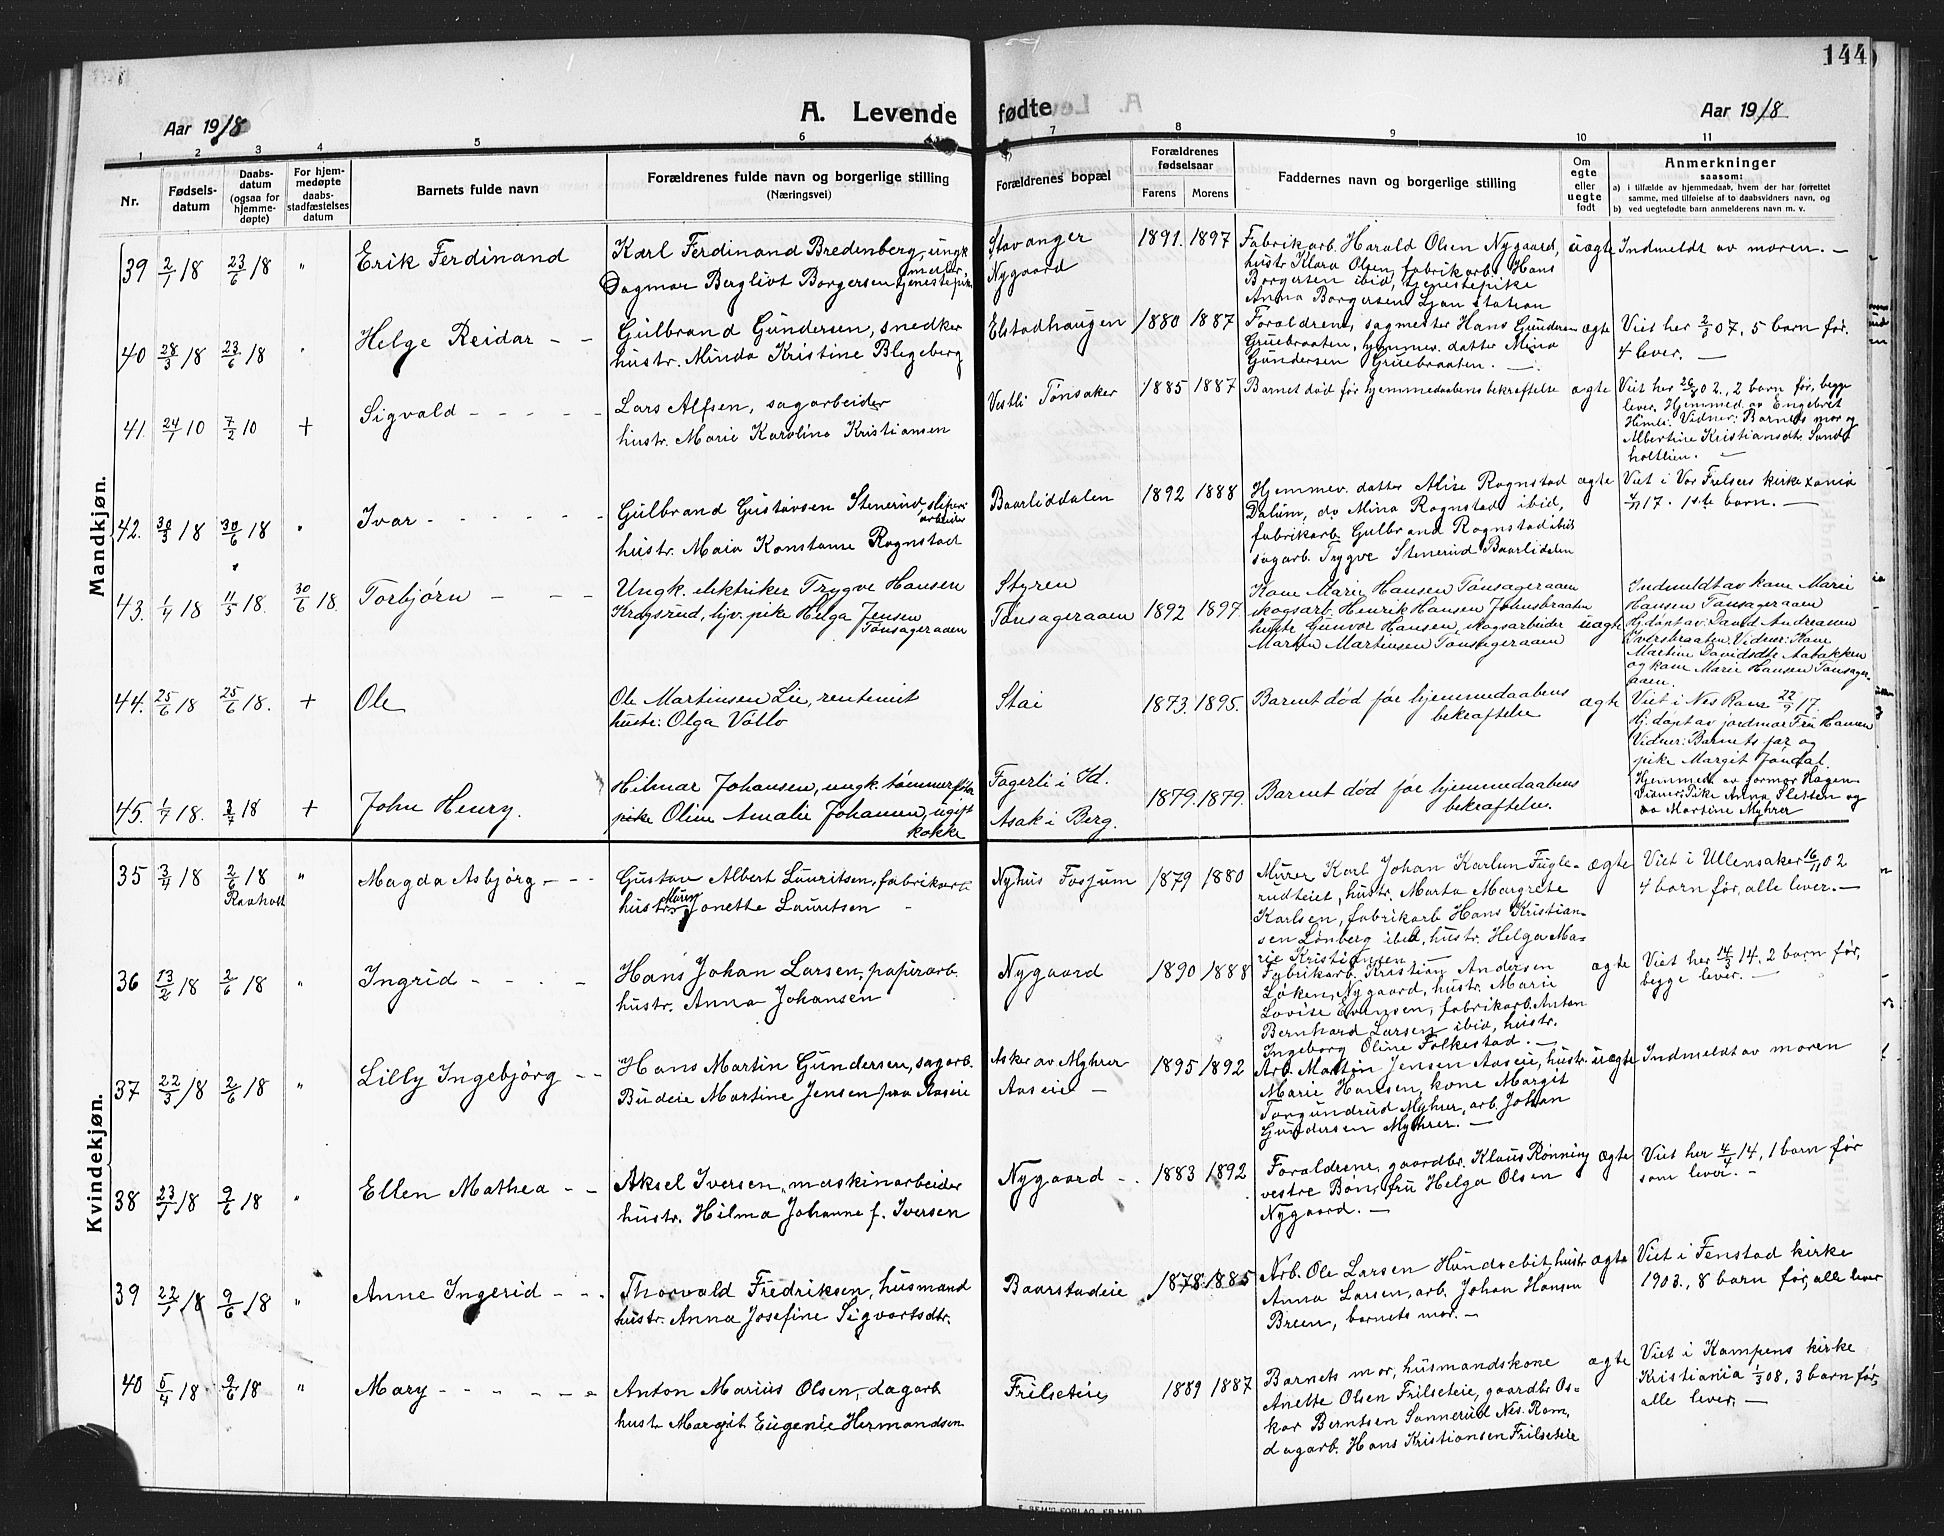 144
Aar 1918
A. Levende fødte
Aar 1918
1 2 3 4 5 6 7 8 9 10 11
Nr.
Fødsels-
datum
Daabs-
datum
(ogsaa for
hjemme-
døpte)
For hjem-
medøpte
daabs-
stadfæstelses
datum
Barnets fulde navn
Forældrenes fulde navn og borgerlige stilling
(Næringsvei)
Forældrenes bopæl
Forældrenes
fødselsaar
Farens Morens
Faddernes navn og borgerlige stilling
Om
egte
eller
uegte
født
Anmerkninger
saasom:
a) i tilfælde av hjemmedaab, hvem der har forrettet
samme, med tilføielse af to daabsvidners navn, og
b) ved uegtefødte barn anmelderens navn m. v.
Mandkjøn.
39 2/1 18 23/6 18 " Erik Ferdinand
Karl Ferdinand Bredenberg, ungk.
Dagmar Bergliot Borgersen tjenestepike
Stavanger
Nygaard
1891. 1897
Fabrikarb. Harald Olsen Nygaard,
hustr Klara Olsen, fabrikarb. Hans
Borgersen ibid, tjenestepike
Anna Borgersen Ljan station
uægte Indmeldt av moren. —
40 28/3 18 23/6 18 " Helge Reidar — —
Gulbrand Gundersen, snedker
hustr. Minda Kristine Blegeberg
Elstadhaugen 1880 1887
Forældrene, sagmester Hans Gundersen
Gruebraaten, hjemmev. datter Mina
Gundersen Gruebraaten. —
ægte Viet her 2/3 07, 5 barn før.
4 lever. —
41. 24/1 10 7/2 10 + Sigvald — — — — —
Lars Alfsen, sagarbeider
hustr. Marie Karoline Kristiansen
Vestli Tønsaker 1885 1887 Barnet død før hjemmedaabens bekræftelse ægte
Viet her 26/3 02., 2 barn før, begge
lever. Hjemmed. av Engebret
Himli. Vidner: Barnets mor og
Albertine Kristiansdtr. Sand-
holtlien. —
42. 30/3 18 30/6 18 " Ivar — — — — — —
Gulbrand Gustavsen Stenerud, sliperi-
arbeider
hustr. Maia Konstanse Rognstad
Baarliddalen 1892 1888
Hjemmev. datter Alise Rognstad
Dalum, do Mina Rognstad ibid,
fabrikarb. Gulbrand Rognstad ibid
sagarb. Trygve Stenerud Baarlidalen
ægte Viet i Vor Frelsers kirke Xania
17. 1ste barn. —
43. 1/4 18 11/5 18. 30/6 18. Torbjørn — — —
Ungk. elektriker Trygve Hansen
Kragsrud, hjv. pike Helga Jensen
Tønsageraaen
Styren
Tønsageraaen 1892 1897.
Kone Marie Hansen Tønsageraaen
skogsarb. Henrik Hansen Johnsbraaten
hustr Gunvor Hansen, skogsarbeider
Martin Martinsen Tønsageraaen
uægte Indmeldt av kone Marie
Hansen Tønsageraaen
Hj. døpt av: David Andreasen
Iversbraaten. Vidner: Kone
Martine Davidsdtr Aabakken
og kone Marie Hansen Tønsager-
aaen.
44. 25/6 18 25/6 18. + Ole
Ole Martinsen Lie, rentenist
hustr: Olga Vollo
Stai 1873. 1895. Barnet død før hjemmedaabens
bekræftelse
ægte Viet i Nes Rom. 22/9 17.
Hj. døpt av jordmor Fru Hansen
Vidner: Barnets far og
pike Margit Jøndal.
45. 1/7 18. 3/7 18 + John Henry.
Hilmar Johansen, ungk.
pike Oline Amalie Johansen, ugift
kokke
Fagerli i Id.
Asak i Berg.
1879. 1879. Barnet død før hjemmedaabens
bekræftelse.
Hjemmed. av formor Hagen
Vidner: Pike Anna Sletten og
do Martine Myhrer
Kvindekjøn.
35 3/4 18 2/6 18 " Magda Asbjørg — — —
Raaholt
Gustav Albert Lauritsen, fabrikarb.
hustr. Maren Jonette Lauritsen
Nyhus Fosjum 1879 1880
Murer Karl Johan Karlsen Fugle-
rudteiet, hustr. Marta Margrete
Karlsen, fabrikarb Hans Kristian-
sen Lønberg ibid, hustr. Helga Ma-
rie Kristiansen —
ægte Viet i Ullensaker 16/11 02
4 barn før, alle lever. —
36 13/2 18 2/6 18 " Ingrid — — — —
Hans Johan Larsen, papirarb.
hustr. Anna Johansen
Nygaard 1890 1888
Fabrikarb. Kristian Andersen
Løken, Nygaard, hustr. Marie
Lovise Evensen, fabrikarb. Anton
Bernhard Larsen ibid, hustr.
Ingeborg Oline Folkestad. —
ægte Viet her 14/3 14. 2 barn før,
begge lever. —
37 22/3 18 2/6 18 " Lilly Ingebjørg — —
Hans Martin Gundersen, sagarb.
Budeie Martine Jensen fra Aaseie
Asker av Myhrer
Aaseie —
1895 1892
Arb. Martin Jensen Aaseie, hustr.
Marie Hansen, kone Margit
Torgundrud Myhrer, arb. Johan
Gundersen Myhrer. —
uægte Indmeldt av moren
38 23/1 18 9/6 18 " Ellen Mathea — —
Aksel Iversen, maskinarbeider
hustr. Hilma Johanne f. Iversen
Nygaard — 1883 1892
Forældrene, gaardbr. Klaus Rønning
vestre Bøn, fru Helga Olsen
Nygaard. —
ægte Viet her 4/4 14, 1 barn før
som lever. —
39 22/1 18 9/6 18 " Anne Ingerid — — —
Thorvald Fredriksen, husmand
hustr. Anna Josefine Sigvartsdtr.
Baarstadeie 1878 1885
Arb. Ole Larsen Hundsebit, hustr
Anna Larsen, arb. Johan Hansen
Breen, barnets mor. —
ægte Viet i Fenstad kirke
1903., 8 barn før, alle lever
40 5/4 18 9/6 18 " Mary — — — — — —
Anton Marius Olsen, dagarb
hustr Margit Eugenie Hermandsen
Frilseteie 1889 1887
Barnets mor, husmandskone
Anette Olsen Frilseteie, gaardbr. Os-
kar Berntsen Sonnerud Nes. Rom,
dagarb. Hans Kristiansen Frilseteie
ægte Viet i Kampens kirke
Kristiania 1/3 08, 3 barn før,
alle lever. —